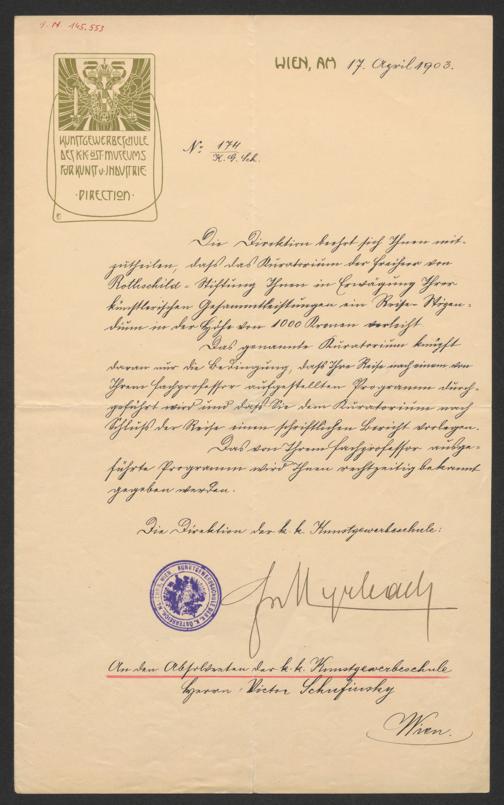 I.N. 145.553
WIEN, AM 17. April 1903.
KUNSTGEWERBESCHULE
DES K·K·ÖST·MUSEUMS
FÜR KUNST U·INDUSTRIE
·DIRECTION·
No 174
K. G. Sch.
Die Direktion beehrt sich Ihnen mit-
zutheilen, dass das Kuratorium der Freiherr von
Rothschild-Stiftung Ihnen in Erwägung Ihrer
künstlerischen Gesammtleistungen ein Reise-Stipen-
dium in der Höhe von 1000 Kronen verleiht.
Das genannte Kuratorium knüpft
daran nur die Bedingung, daß Ihre Reise nach einem von
Ihrem Fachprofessor aufgestellten Programm durch-
geführt wird und daß Sie dem Kuratorium nach
Schluß der Reise einen schriftlichen Bericht vorlegen.
Das von Ihrem Fachprofessor ausge-
führte Programm wird Ihnen rechtzeitig bekannt
gegeben werden.
Die Direktion der k. k. Kunstgewerbeschule:
KUNSTGEWERBESCHULE DES K. K. ÖSTERREICH. WIEN
Myrbach
An den Absolventen der k. k. Kunstgewerbeschule
Herrn Victor Schufinsky
Wien.